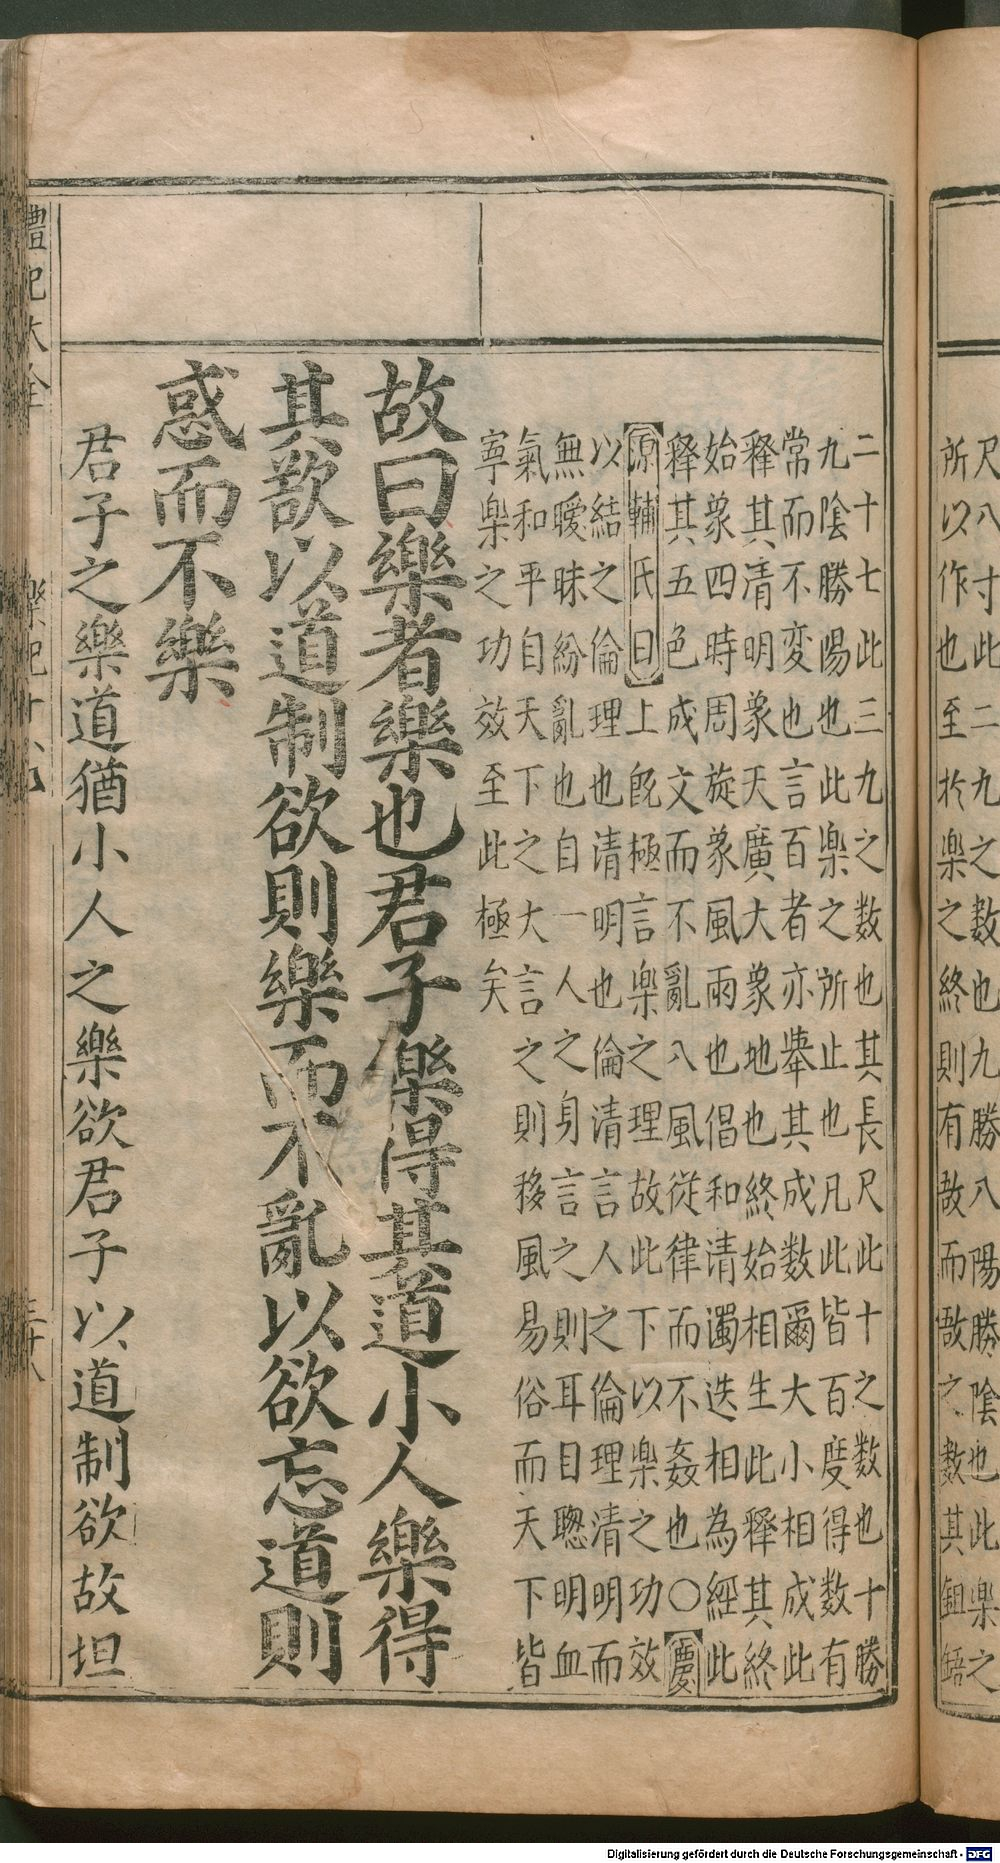 尺八寸此二九之数也九勝八陽勝陰也此樂之
所以作也至於楽之終則有敔而敔之数其鉏鋙
二十七此三九之数也其長尺此十之数也十勝
九陰勝陽也此樂之所止也凡此皆百度得数有
常而不変也言百者亦舉其成数爾大小相成此
釋其清明象天廣大象地也終始相生此釋其終
始象四時周旋象風雨也倡和清濁迭相為經此
釋其五色成文而不亂八風從律而不姦也〇慶
源輔氏曰上旣極言楽之理故此下以楽之功效
以結之倫理也清明也倫清言人之倫理清明而
無曖昧紛亂也自一人之身言之則耳目聰明血
氣和平自天下之大言之則移風易俗而天下皆
寧楽之功效至此極矣
故曰樂者樂也君子樂得其道小人樂得
其欲以道制欲則樂而不亂以欲忘道則
惑而不樂
君子之樂道猶小人之樂欲君子以道制欲故坦
禮記大全
樂記十八
三十八
Digitalisierung gefördert durch die Deutsche Forschungsgemeinschaft - DFG